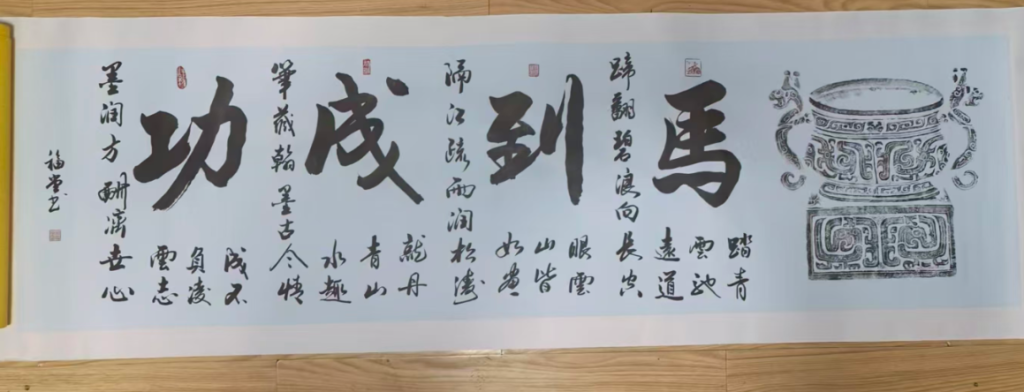 馬
踏青
雲驰
遠道
蹄翻碧浪向長空
到
眼雲
山皆
如畫
隔江疏雨润松濤
成
就丹
青山
水趣
筆藏翰墨古今情
功
成不
負凌
雲志
墨润方酬濟世心
福堂书